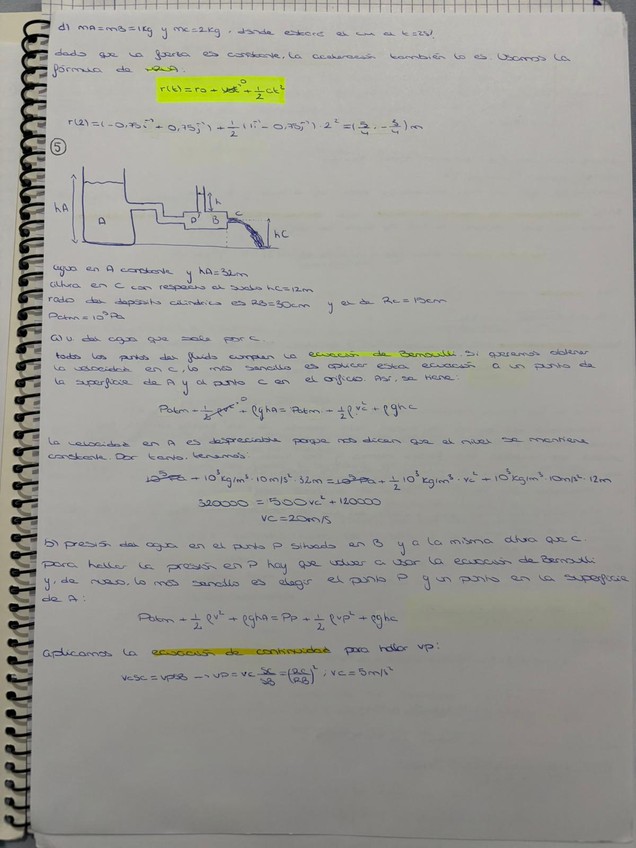 d) mA=mB=1kg y mc=2kg, donde estará el cm al t=2s?
dado que la fuerza es constante, la aceleración también lo es. Usamos la
fórmula de
r(t) = r0 + v0t⁰ + 1/2 ct²
r(2)=(-0,75i + 0,75j) + 1/2 (1i - 0,75j) · 2² = (5/4, -3/4) m
5
hA A P B h C hC
agua en A constante y hA=32m
altura en C con respecto al suelo hC=12m
radio del depósito cilíndrico es RB=30cm y el de Rc=15cm
Patm=10⁵Pa
a) v del agua que sale por C.
todos los puntos del fluido cumplen la ecuación de Bernoulli. Si queremos obtener
la velocidad en C, lo más sencillo es aplicar esta ecuación a un punto de
la superficie de A y al punto C en el orificio. Así, se tiene:
Patm + 1/2 ρv²⁰ + ρghA = Patm + 1/2 ρvc² + ρghc
la velocidad en A es despreciable porque nos dicen que el nivel se mantiene
constante. Por tanto, tenemos:
10⁵Pa + 10³kg/m³ · 10m/s² · 32m = 10⁵Pa + 1/2 10³kg/m³ · vc² + 10³kg/m³ · 10m/s² · 12m
320000 = 500vc² + 120000
vc = 20m/s
b) presión del agua en el punto P situado en B y a la misma altura que C.
para hallar la presión en P hay que volver a usar la ecuación de Bernoulli
y, de nuevo, lo más sencillo es elegir el punto P y un punto en la superficie
de A:
Patm + 1/2 ρv² + ρghA = Pp + 1/2 ρvp² + ρghc
aplicamos la ecuación de continuidad para hallar vp:
vcSc = vpSB → vp = vc Sc/SB = (Rc/RB)² · vc = 5m/s²